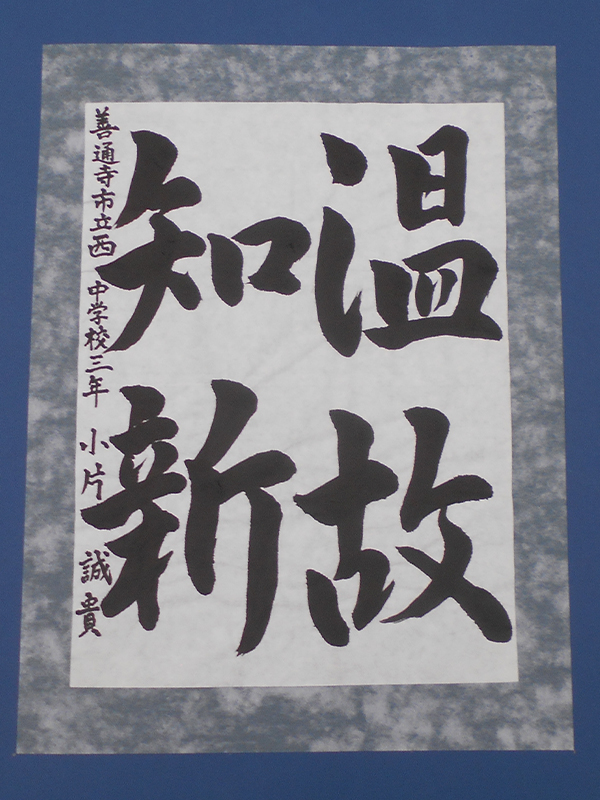 温故
知新
善通寺市立西中学校三年 小片誠貴